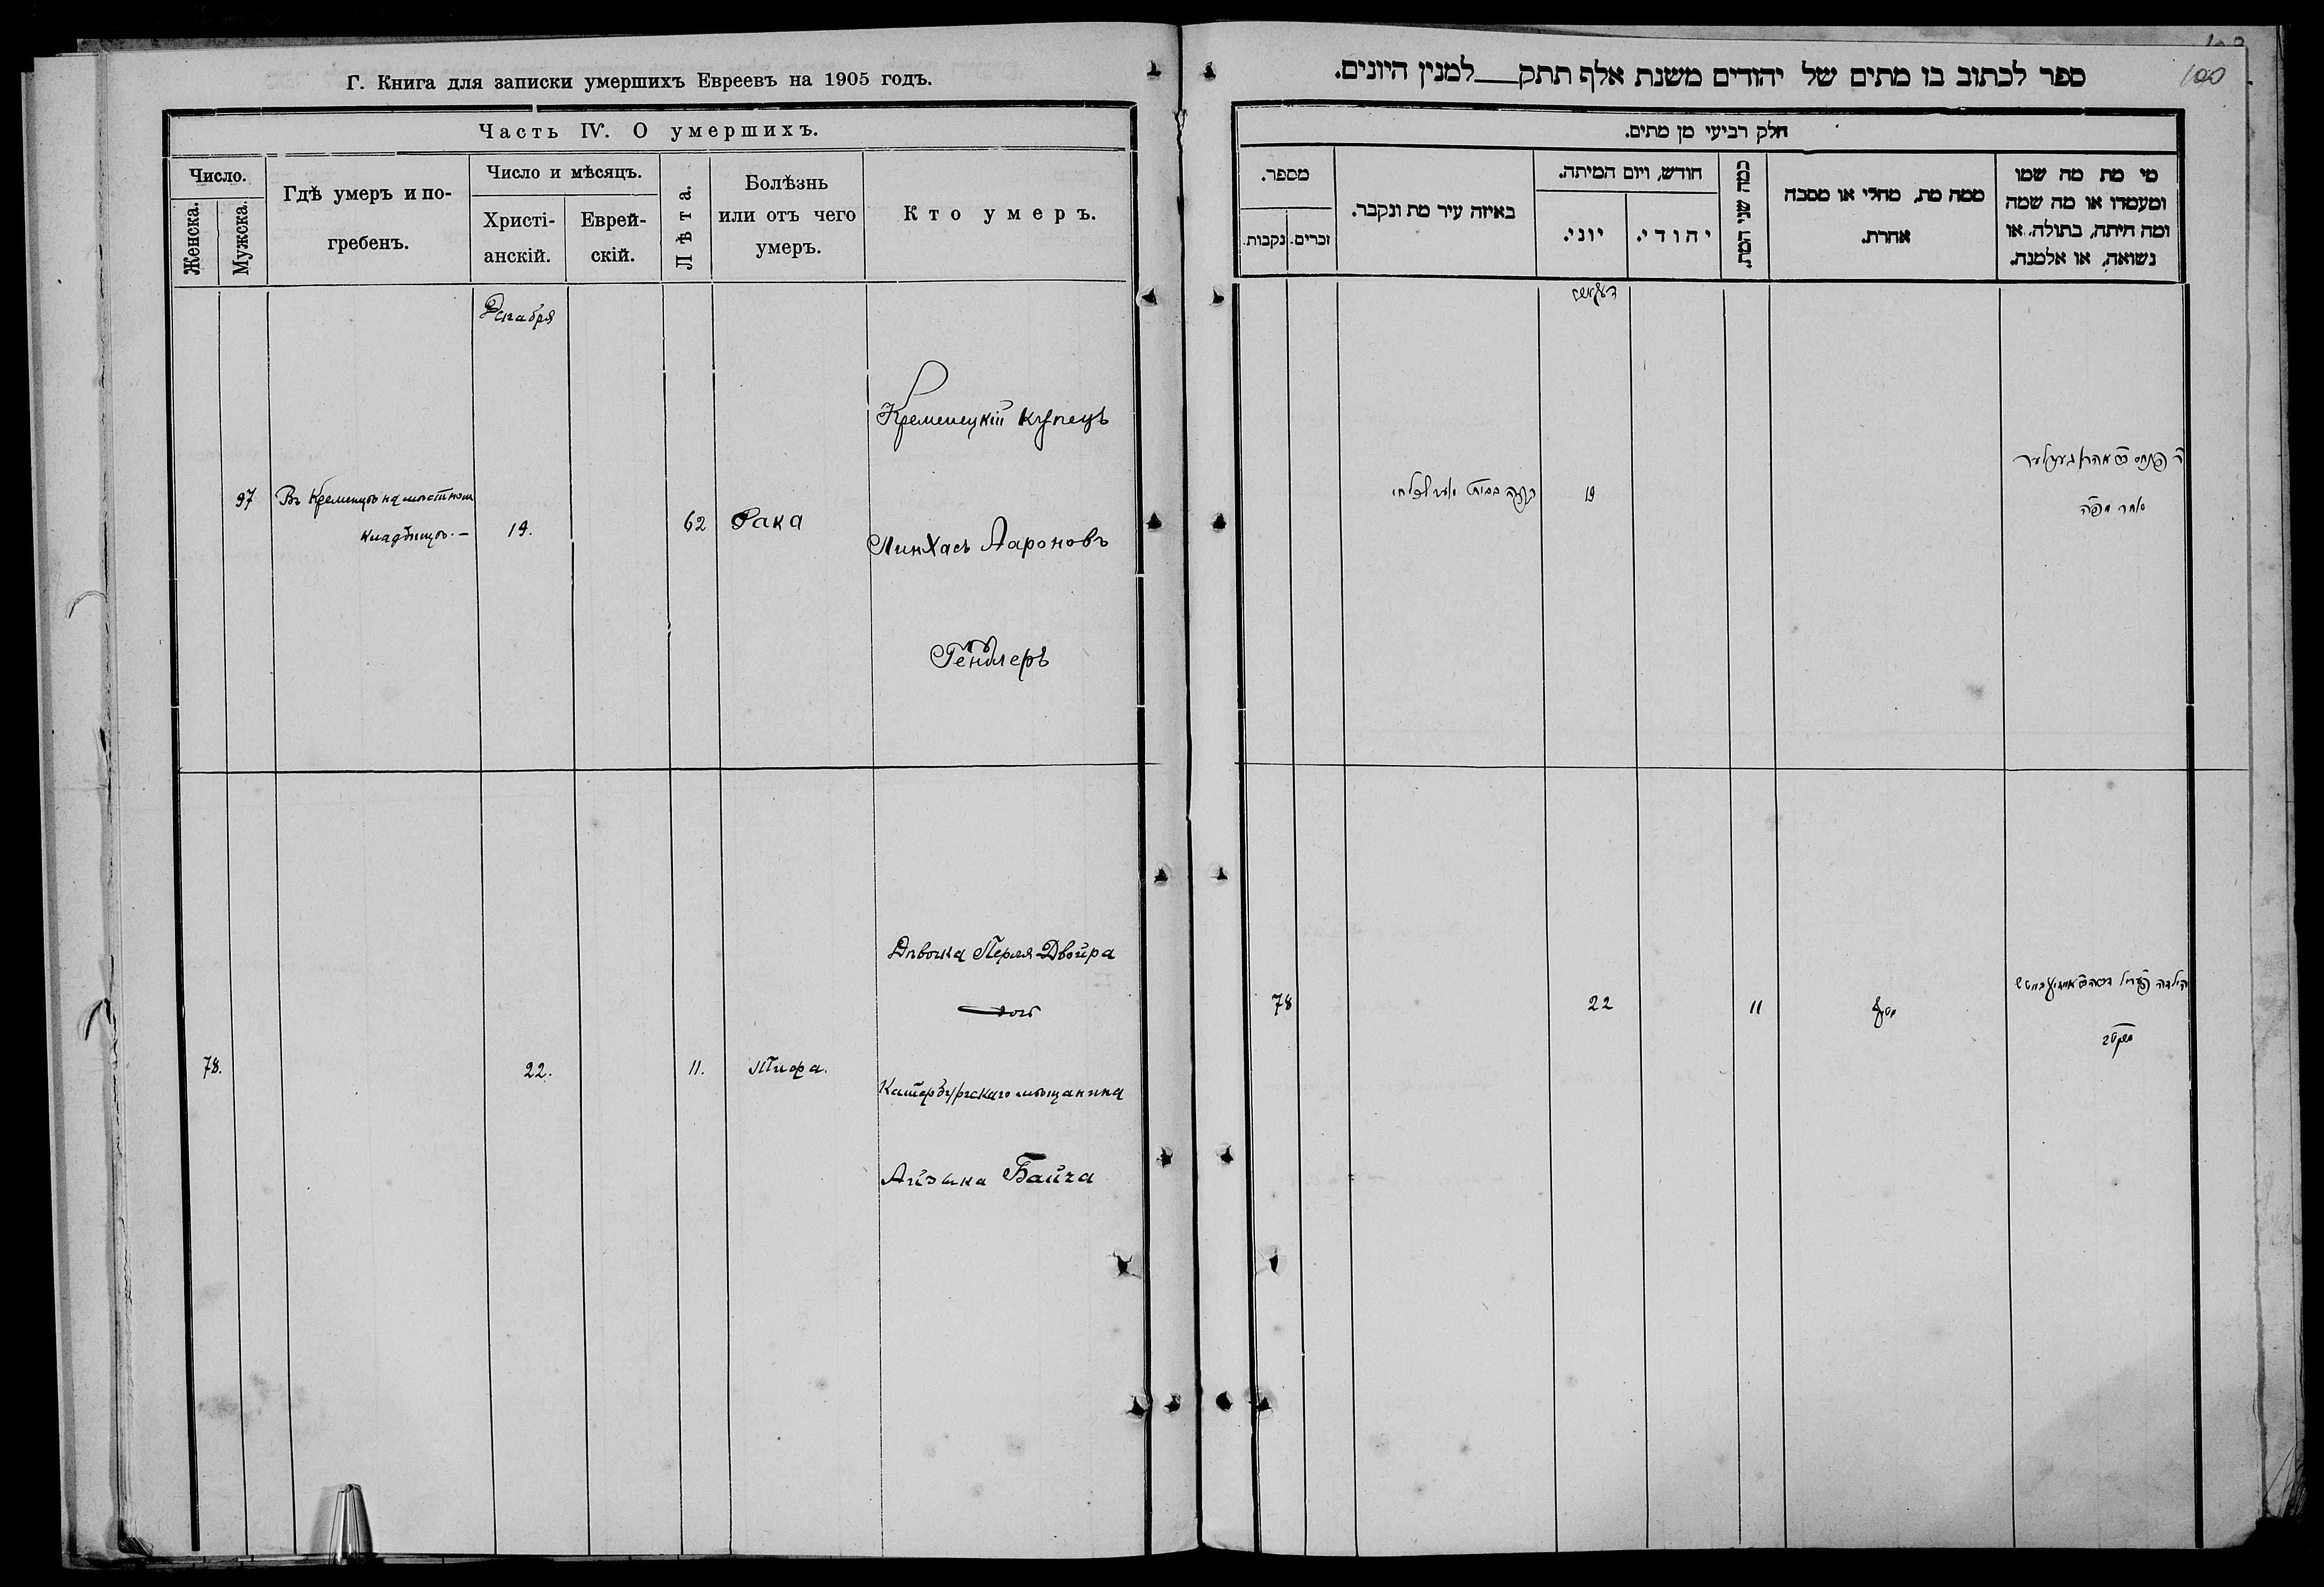 Г. Книга для записки умершихъ Евреевъ на 1905 годъ.
Часть IV. О умершихъ.
Число.
Женска.
Мужска.
Гдѣ умеръ и по-
гребенъ.
Число и мѣсяцъ.
Христі-
анскій.
Еврей-
скій.
Лѣта.
Болѣзнь
или отъ чего
умеръ.
Кто умеръ.
Декабря
Кременецкій купецъ
97 Въ Кременцѣ на мѣстномъ
кладбищѣ.— 19. 62 Рака
Пинхасъ Аароновъ
Дѣвочка Перля-Двойра
78. 22. 11. Тифа.
Катербургскаго мѣщанина
Айзика
ספר לכתוב בו מתים של יהודים משנת אלף תתק למנין היונים.
100
חלק רביעי מן מתים.
מספר.
נקבות.
זכרים.
באיזה עיר מת ונקבר.
חודש, ויום המיתה.
יוני.
יהודי.
כמה שני המת.
ממה מת, מחלי או מסבה
אחרת.
מי מת מה שמו
ומעמדו או מה שמה
ומה היתה, בתולה, או
נשואה, או אלמנה.
19
78 22 11